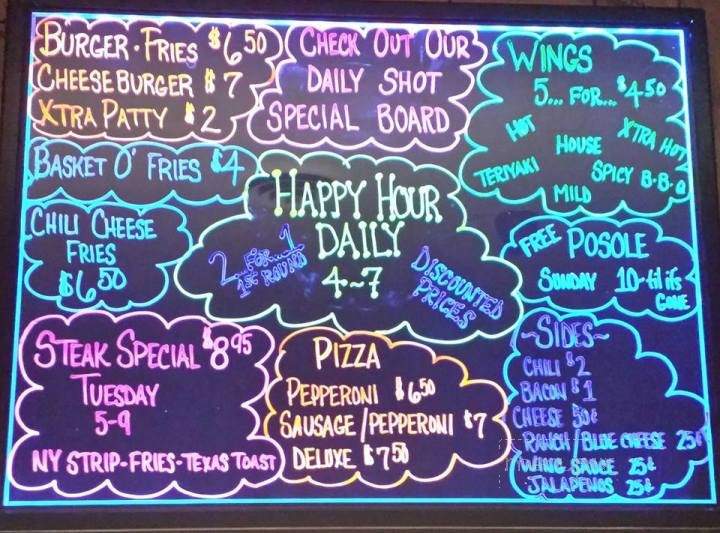 BURGER · FRIES $6.50
CHEESEBURGER $7
XTRA PATTY $2
CHECK OUT OUR
DAILY SHOT
SPECIAL BOARD
WINGS
5... FOR... $4.50
HOT
HOUSE
XTRA HOT
TERIYAKI
SPICY B-B-Q
MILD
BASKET O' FRIES $4
CHILI CHEESE
FRIES
$6.50
HAPPY HOUR
DAILY
4~7
2...FOR...1
1ST ROUND
DISCOUNTED
PRICES
FREE POSOLE
SUNDAY 10-til its
GONE
STEAK SPECIAL $8.95
TUESDAY
5-9
NY STRIP-FRIES-TEXAS TOAST
PIZZA
PEPPERONI $6.50
SAUSAGE/PEPPERONI $7
DELUXE $7.50
~SIDES~
CHILI $2
BACON $1
CHEESE 50¢
RANCH/BLUE CHEESE 25¢
WING SAUCE 25¢
JALAPENOS 25¢